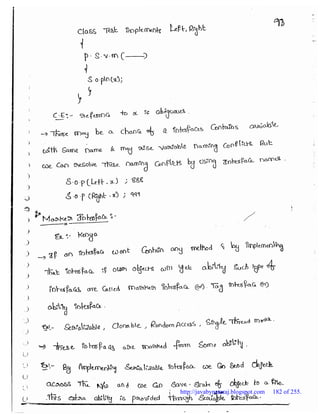 93
Class Test Implements Left, Right
{
P. S. v. m (———)
{
S.o.pln(x);
}
}
C.E:- reference to x is ambiguous.
→ There may be a chance of 2 Interfaces Contains variable
with Same name & may raise variable naming Conflicts But
we Can resolve these naming Conflicts by using Interface names.
S.o.p(Left.x) ; 888
S.o.p (Right.x) ; 999
* Marker Interface :-
Ex:- Kenya
→ If an Interface wont Contain any method & by Implementing
that Interface if our objects will get ability Such type of
Interfaces are Called marker Interface (or) Tag Interface (or)
ability Interface.
Ex:- Serializable, Cloneable, RandomAccess, Single Thread model.
→ these Interfaces are marked from Some ability.
Ex:- By Implementing Serializable Interface we Can Send Object
across The N/w and we Can Save State of Object to a file.
This extra ability is provided through Serializable Interface.
http://javabynataraj.blogspot.com 182 of 255.